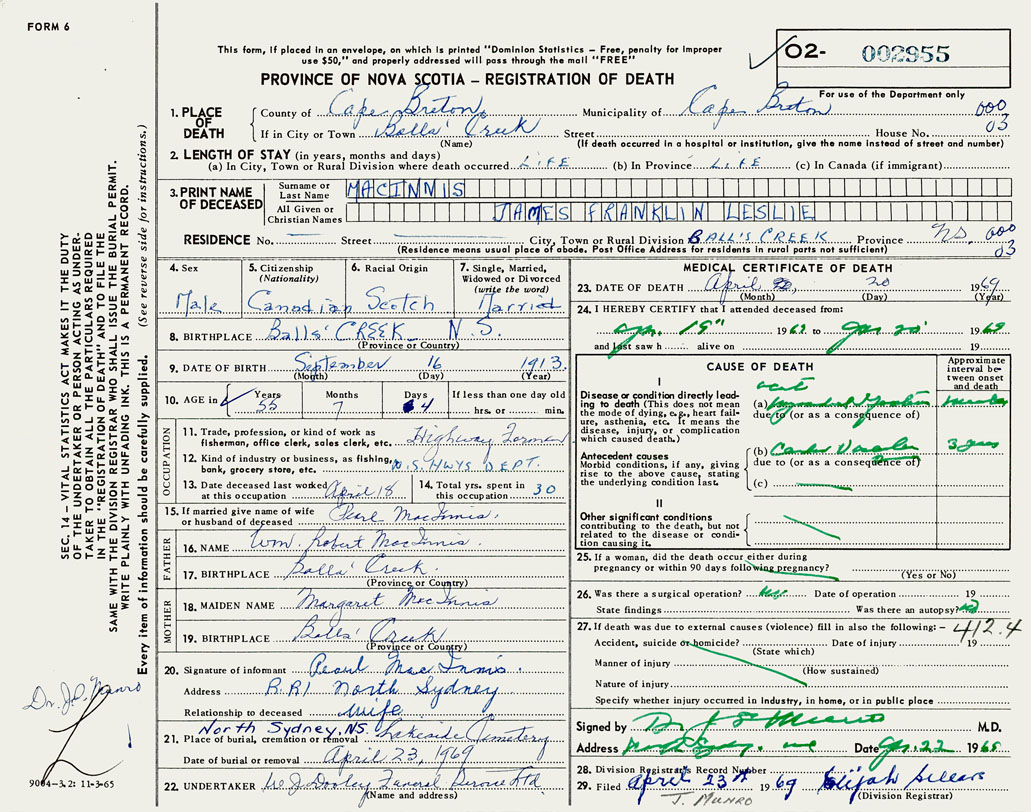 FORM 6
This form, if placed in an envelope, on which is printed "Dominion Statistics – Free, penalty for improper
use $50," and properly addressed will pass through the mail "FREE"
PROVINCE OF NOVA SCOTIA – REGISTRATION OF DEATH
O2- 002955
For use of the Department only
000
03
1. PLACE OF DEATH
County of Cape Breton Municipality of Cape Breton
If in City or Town Balls' Creek Street House No.
(Name) (If death occurred in a hospital or institution, give the name instead of street and number)
2. LENGTH OF STAY (in years, months and days)
(a) In City, Town or Rural Division where death occurred LIFE (b) In Province LIFE (c) In Canada (if immigrant)
3. PRINT NAME OF DECEASED
Surname or Last Name MACINNIS
All Given or Christian Names JAMES FRANKLIN LESLIE
RESIDENCE No. Street City, Town or Rural Division BALL'S CREEK Province NS. 000
(Residence means usual place of abode. Post Office Address for residents in rural parts not sufficient) 03
4. Sex
Male
5. Citizenship
(Nationality)
Canadian
6. Racial Origin
Scotch
7. Single, Married,
Widowed or Divorced
(write the word)
Married
8. BIRTHPLACE Balls' CREEK N.S.
(Province or Country)
9. DATE OF BIRTH September 16 1913.
(Month) (Day) (Year)
10. AGE in Years Months Days If less than one day old
55 7 4 hrs. or min.
OCCUPATION
11. Trade, profession, or kind of work as
fisherman, office clerk, sales clerk, etc. Highway Forman
12. Kind of industry or business, as fishing,
bank, grocery store, etc. N.S. HWYS DEPT.
13. Date deceased last worked
at this occupation April 18
14. Total yrs. spent in
this occupation 30
15. If married give name of wife
or husband of deceased Pearl MacInnis.
FATHER
16. NAME Wm. Robert MacInnis.
17. BIRTHPLACE Balls' Creek.
(Province or Country)
MOTHER
18. MAIDEN NAME Margaret MacInnis
19. BIRTHPLACE Balls' Creek
(Province or Country)
20. Signature of informant Pearl MacInnis.
Address R.R1 North Sydney
Relationship to deceased Wife.
North Sydney, NS.
21. Place of burial, cremation or removal Lakeside Cemetery
Date of burial or removal April 23, 1969
22. UNDERTAKER W.J. Dooley Funeral Service Ltd.
(Name and address)
MEDICAL CERTIFICATE OF DEATH
23. DATE OF DEATH April 20 1969
(Month) (Day) (Year)
24. I HEREBY CERTIFY that I attended deceased from:
19" 1969 to 20' 1969
and last saw h alive on 19
CAUSE OF DEATH
Approximate interval between onset and death
I
Disease or condition directly lead-
ing to death (This does not mean
the mode of dying, e.g., heart fail-
ure, asthenia, etc. It means the
disease, injury, or complication
which caused death.)
(a)
due to (or as a consequence of)
Antecedent causes
Morbid conditions, if any, giving
rise to the above cause, stating
the underlying condition last.
(b) 3 years
due to (or as a consequence of)
(c)
II
Other significant conditions
contributing to the death, but not
related to the disease or condi-
tion causing it.
25. If a woman, did the death occur either during
pregnancy or within 90 days following pregnancy?
(Yes or No)
26. Was there a surgical operation? Date of operation 19
State findings Was there an autopsy? No
27. If death was due to external causes (violence) fill in also the following: – 412.4
Accident, suicide or homicide? Date of injury 19
(State which)
Manner of injury
(How sustained)
Nature of injury
Specify whether injury occurred in Industry, in home, or in public place
Signed by Dr J S Munro M.D.
Address North Sydney Date 22 1969
28. Division Registrar's Record Number
29. Filed April 23rd 1969 Elijah Sellars
(Division Registrar)
J. MUNRO
SEC. 14 – VITAL STATISTICS ACT MAKES IT THE DUTY
OF THE UNDERTAKER OR PERSON ACTING AS UNDER-
TAKER TO OBTAIN ALL THE PARTICULARS REQUIRED
IN THE "REGISTRATION OF DEATH" AND TO FILE THE
SAME WITH THE DIVISION REGISTRAR WHO SHALL ISSUE THE BURIAL PERMIT.
WRITE PLAINLY WITH UNFADING INK. THIS IS A PERMANENT RECORD.
Every item of information should be carefully supplied. (See reverse side for instructions.)
Munro
9004-3.2: 11-3-65